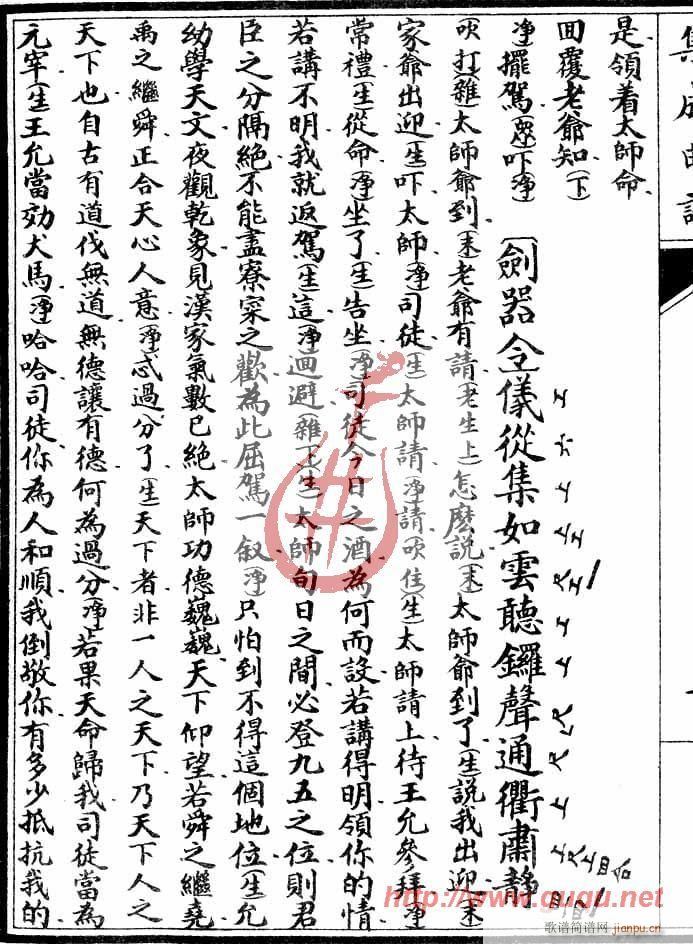 集成曲譜
是領着太師命
回覆老爺知(下)
(淨)擺駕(衆)吓(淨)〔劍器令〕儀從集如雲聽鑼聲通衢肅靜
(吹打)(雜)太師爺到(末)老爺有請(老生上)怎麽說(末)太師爺到了(生)說我出迎(末)
家爺出迎(生)吓太師(淨)司徒(生)太師請(淨)請(吹住)(生)太師請上待王允參拜(淨)
常禮(生)從命(淨)坐了(生)告坐(淨)司徒今日之酒為何而設若講得明領你的情
若講不明我就返駕(生)這(淨)迴避(雜下)(生)太師旬日之間必登九五之位則君
臣之分隔絶不能盡寮寀之歡為此屈駕一叙(淨)只怕到不得這個地位(生)允
幼學天文夜觀乾象見漢家氣數已絶太師功德巍巍天下仰望若舜之繼堯
禹之繼舜正合天心人意(淨)忒過分了(生)天下者非一人之天下乃天下人之
天下也自古有道伐無道無德讓有德何為過分(淨)若果天命歸我司徒當為
元宰(生)王允當効犬馬(淨)哈哈司徒你為人和順我倒敬你有多少抵抗我的
http://www.gugu.net
歌谱简谱网 jianpu.cn